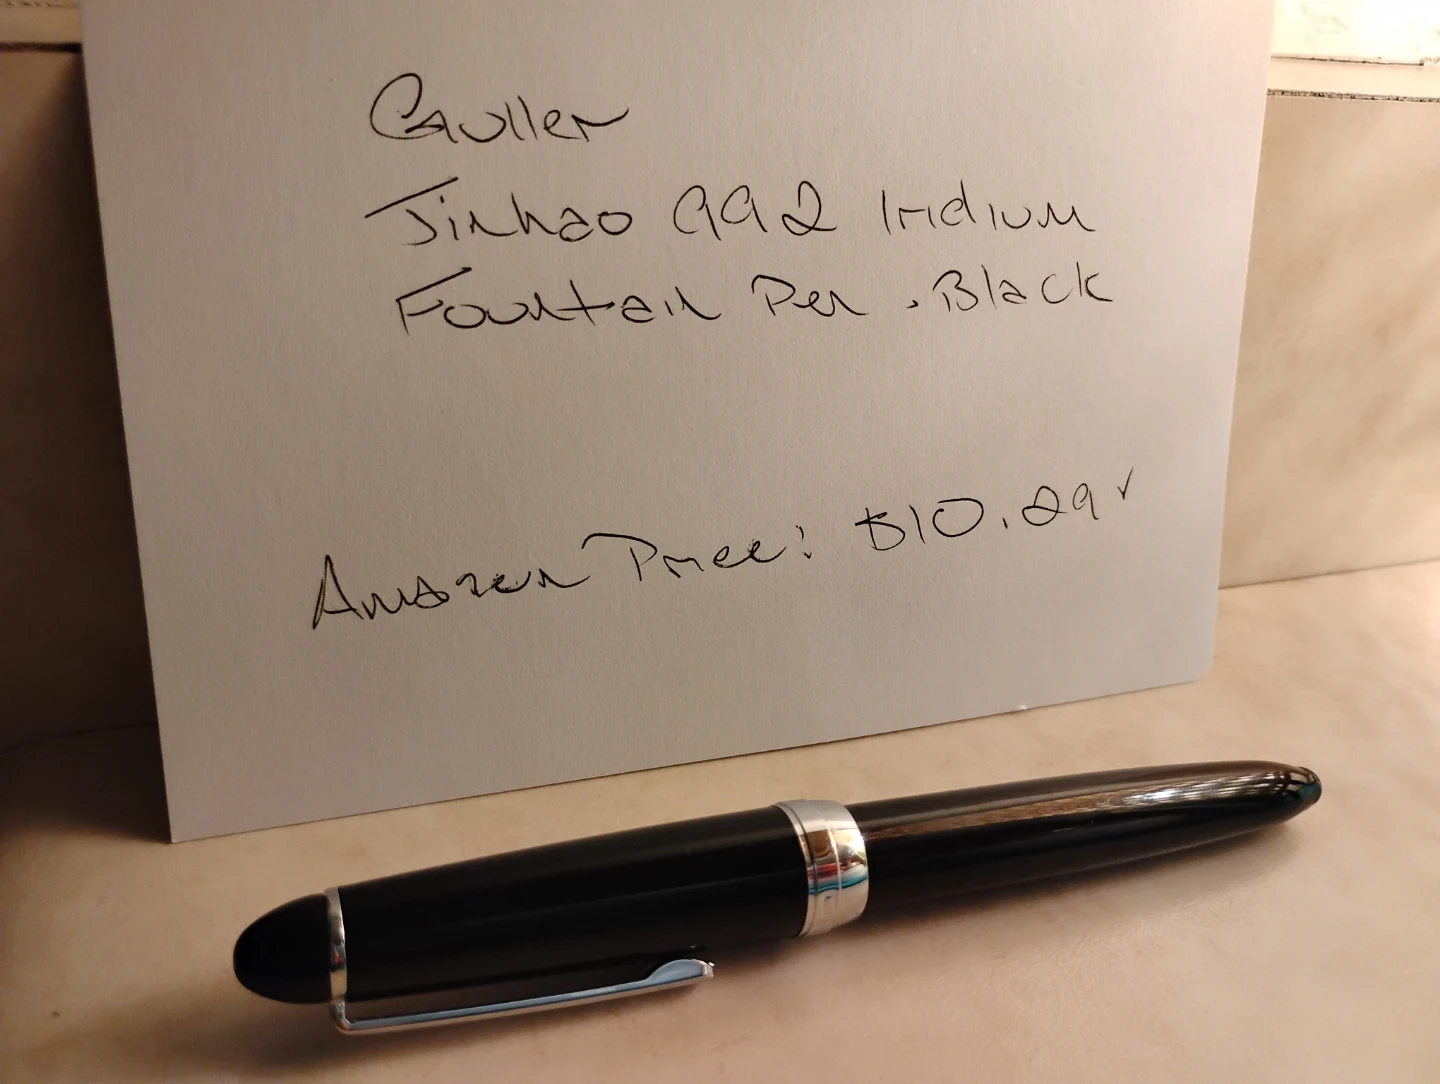 Guller
Jinhao 992 Iridium
Fountain Pen . Black
Amazon Price: $10.29 ✓